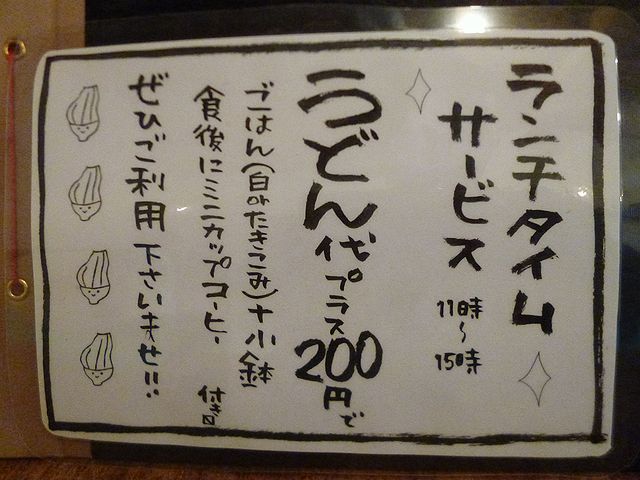 ランチタイム
サービス
11時〜15時
うどん代プラス200円で
ごはん(白orたきこみ)+小鉢
食後にミニカップコーヒー付き
ぜひご利用下さいませ!!